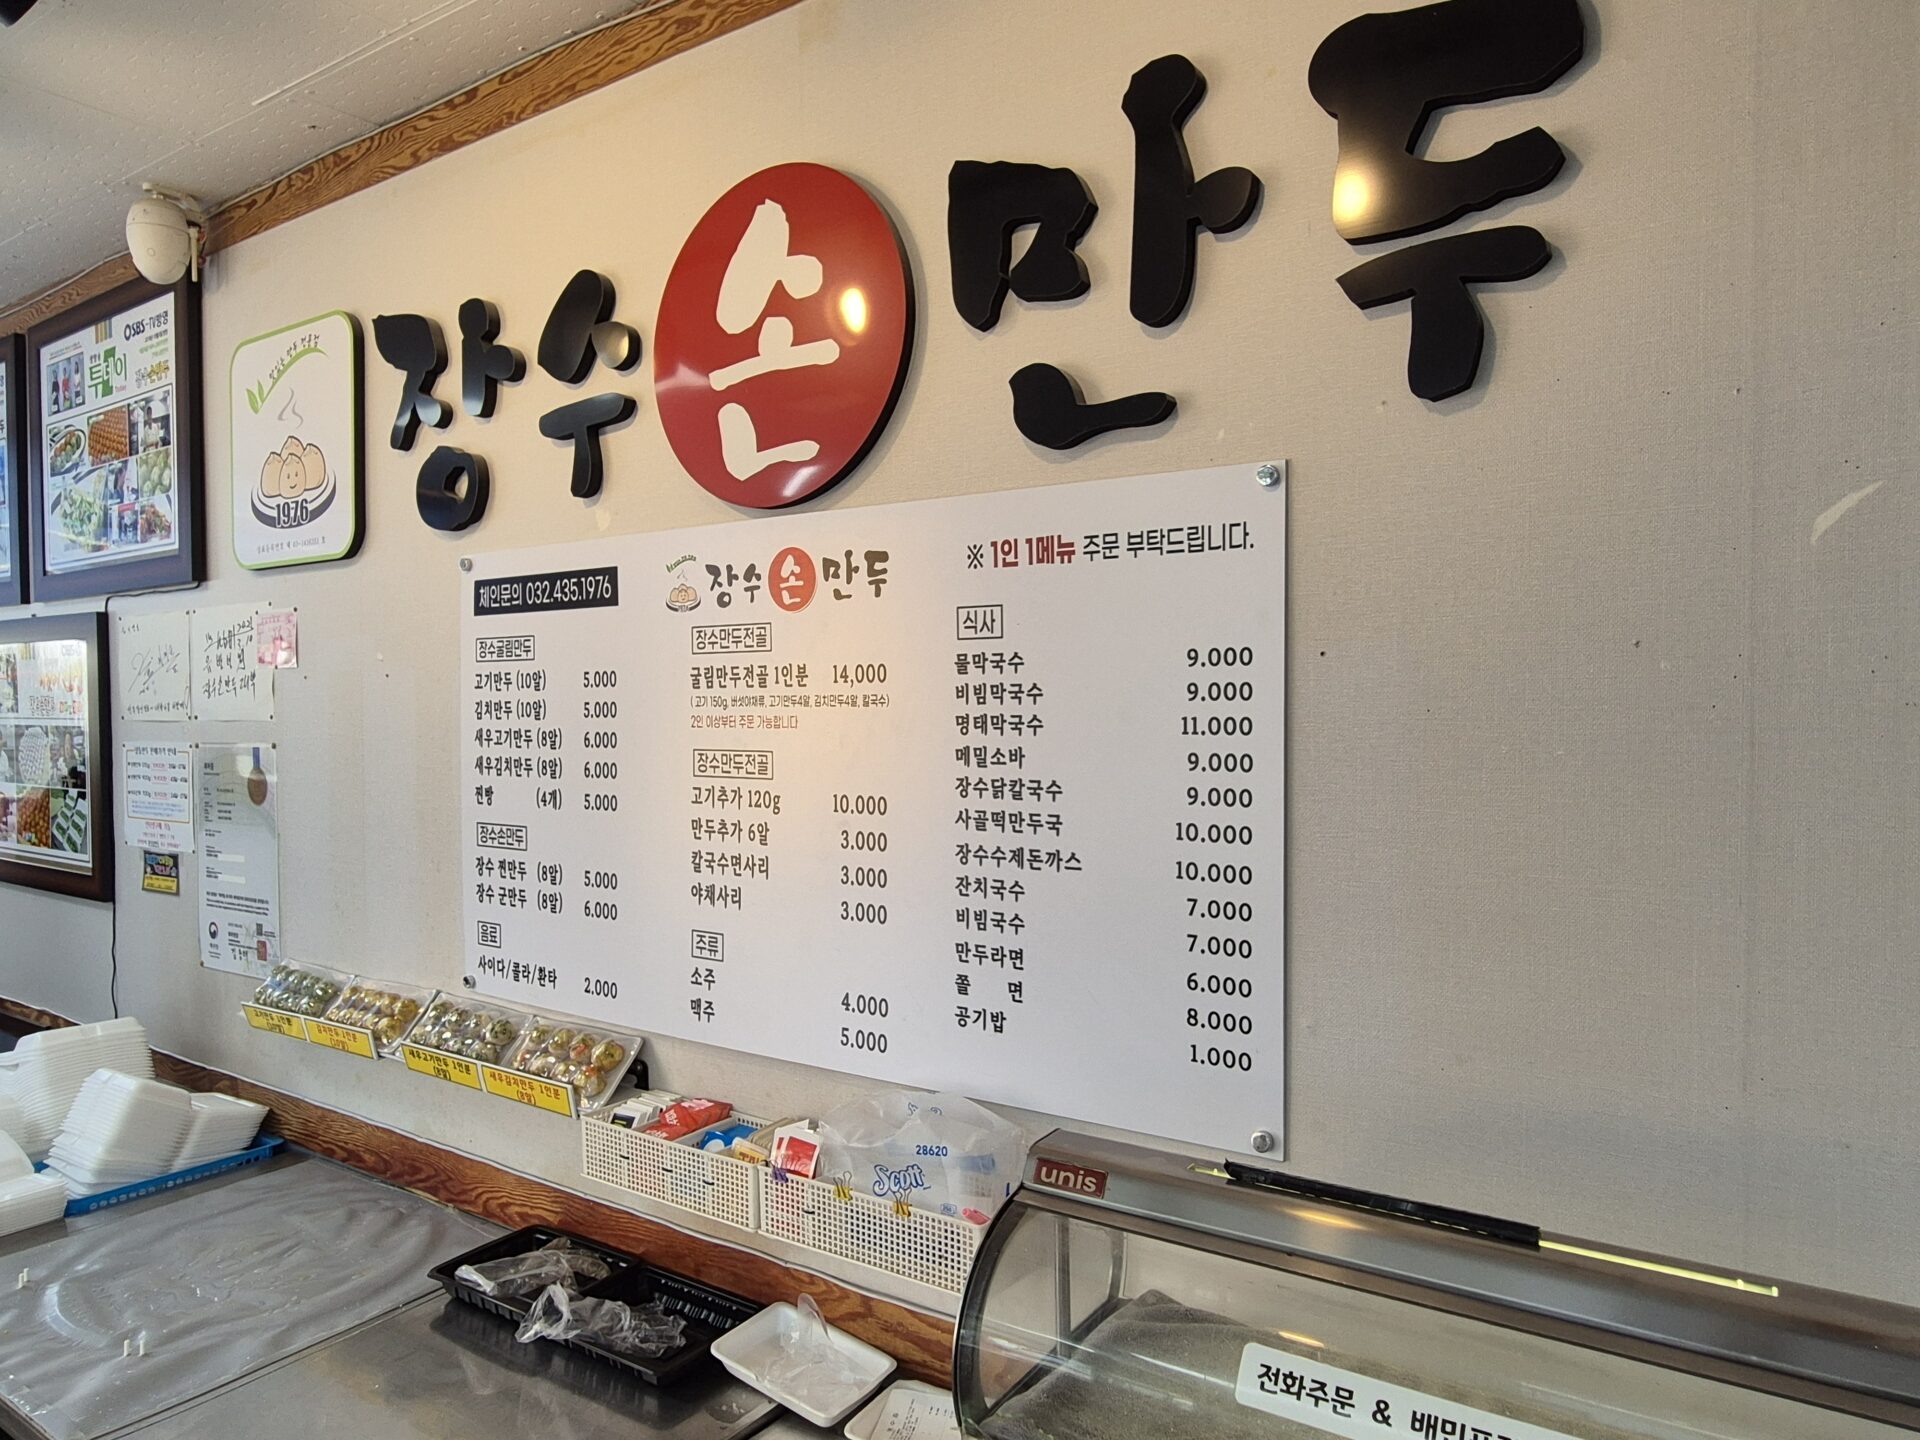 장수손만두
맛있는 만두 전문점
1976
SBS-TV방영
투데이
Today
장수손만두
체인문의 032.435.1976
장수손만두
※ 1인 1메뉴 주문 부탁드립니다.
장수굴림만두
고기만두 (10알) 5.000
김치만두 (10알) 5.000
새우고기만두 (8알) 6.000
새우김치만두 (8알) 6.000
찐빵 (4개) 5.000
장수손만두
장수 찐만두 (8알) 5.000
장수 군만두 (8알) 6.000
음료
사이다/콜라/환타 2.000
장수만두전골
굴림만두전골 1인분 14,000
( 고기 150g, 버섯야채류, 고기만두4알, 김치만두4알, 칼국수)
2인 이상부터 주문 가능합니다
장수만두전골
고기추가 120g 10.000
만두추가 6알 3.000
칼국수면사리 3.000
야채사리 3.000
주류
소주 4.000
맥주 5.000
식사
물막국수 9.000
비빔막국수 9.000
명태막국수 11.000
메밀소바 9.000
장수닭칼국수 9.000
사골떡만두국 10.000
장수수제돈까스 10.000
잔치국수 7.000
비빔국수 7.000
만두라면 6.000
쫄 면 8.000
공기밥 1.000
고기만두 1인분
(10알)
김치만두 1인분
(10알)
새우고기만두 1인분
(8알)
새우김치만두 1인분
(8알)
28620
Scott
unis
전화주문 & 배민포